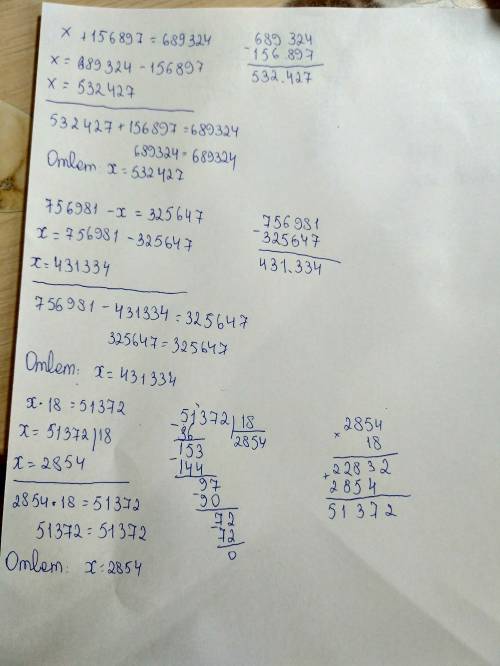 x + 156897 = 689324
x = 689324 - 156897
x = 532427
532427 + 156897 = 689324
689324 = 689324
Ответ: x = 532427
689 324
- 156 897
532.427
756981 - x = 325647
x = 756981 - 325647
x = 431334
756981 - 431334 = 325647
325647 = 325647
Ответ: x = 431334
756981
- 325647
431.334
x · 18 = 51372
x = 51372 | 18
x = 2854
2854 · 18 = 51372
51372 = 51372
Ответ: x = 2854
- 51372 | 18
36 2854
153
- 144
97
- 90
72
- 72
0
2854
× 18
22832
+ 2854
51372